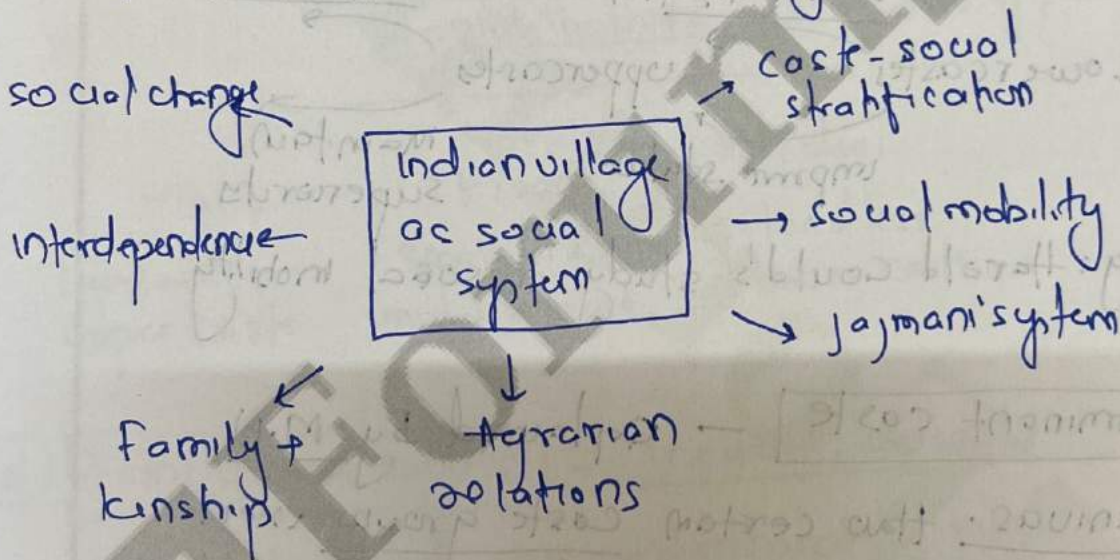 social change
interdependence
Indian village
as social
system
caste - social
stratification
social mobility
Jajmani system
Family +
kinship
Agrarian
relations
Forum